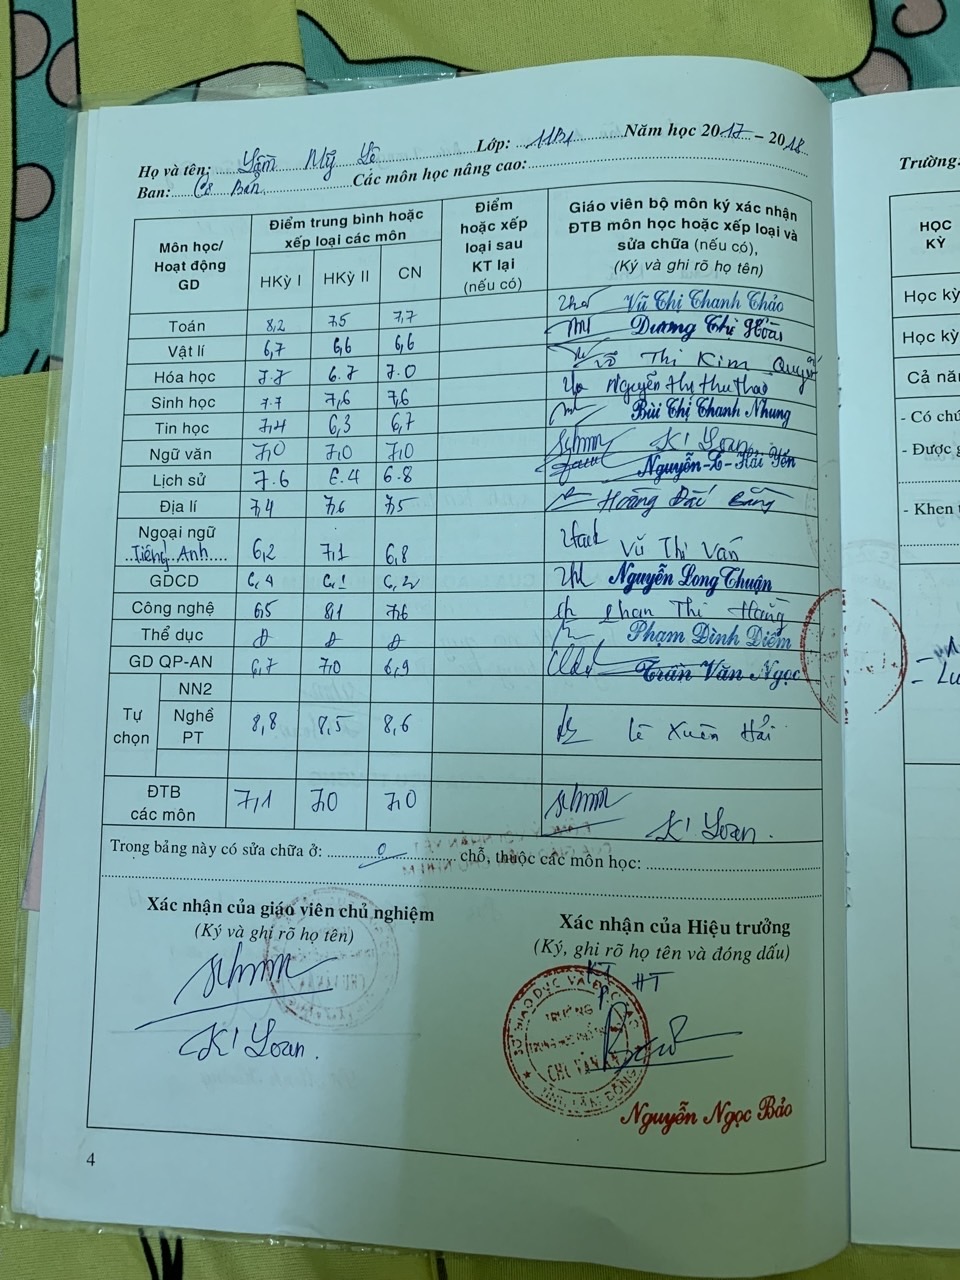 Họ và tên: Lầm Mỹ Lệ Lớp: 11B1 Năm học 2017 – 2018
Ban: Cơ Bản Các môn học nâng cao:
Môn học/ Hoạt động GD
Điểm trung bình hoặc xếp loại các môn
HKỳ I HKỳ II CN
Điểm hoặc xếp loại sau KT lại (nếu có)
Giáo viên bộ môn ký xác nhận ĐTB môn học hoặc xếp loại và sửa chữa (nếu có),
(Ký và ghi rõ họ tên)
Toán 8,2 7,5 7,7 Vũ Thị Thanh Thảo
Vật lí 6,7 6,6 6,6 Dương Thị Hoài
Hóa học 7.7 6.7 7.0 Thị Kim Quyên
Sinh học 7.7 7,6 7,6 Nguyễn Thy Thu Thảo
Tin học 7,4 6,3 6,7 Bùi Thị Thanh Nhung
Ngữ văn 7,0 7,0 7,0 K' Loan
Lịch sử 7.6 6.4 6.8 Nguyễn Hải Yến
Địa lí 7,4 7,6 7,5 Hoàng Đắc Bằng
Ngoại ngữ
Tiếng Anh 6,2 7,1 6,8 Vũ Thị Vấn
GDCD 6,4 6,1 6,2 Nguyễn Long Thuận
Công nghệ 6,5 8,1 7,6 Phan Thị Hằng
Thể dục Đ Đ Đ Phạm Đình Điểm
GD QP-AN 6,7 7,0 6,9 Trần Văn Ngọc
Tự chọn
NN2
Nghề PT 8,8 8,5 8,6 Lê Xuân Hải
ĐTB các môn 7,1 7,0 7,0 K' Loan
Trong bảng này có sửa chữa ở: 0 chỗ, thuộc các môn học:
Xác nhận của giáo viên chủ nghiệm
(Ký và ghi rõ họ tên)
K' Loan
Xác nhận của Hiệu trưởng
(Ký, ghi rõ họ tên và đóng dấu)
KT HT
P
TRƯỜNG
CHU VĂN AN
Nguyễn Ngọc Bảo
4
Trường:
HỌC KỲ
Học kỳ
Học kỳ
Cả năm
- Có chứ
- Được g
- Khen t